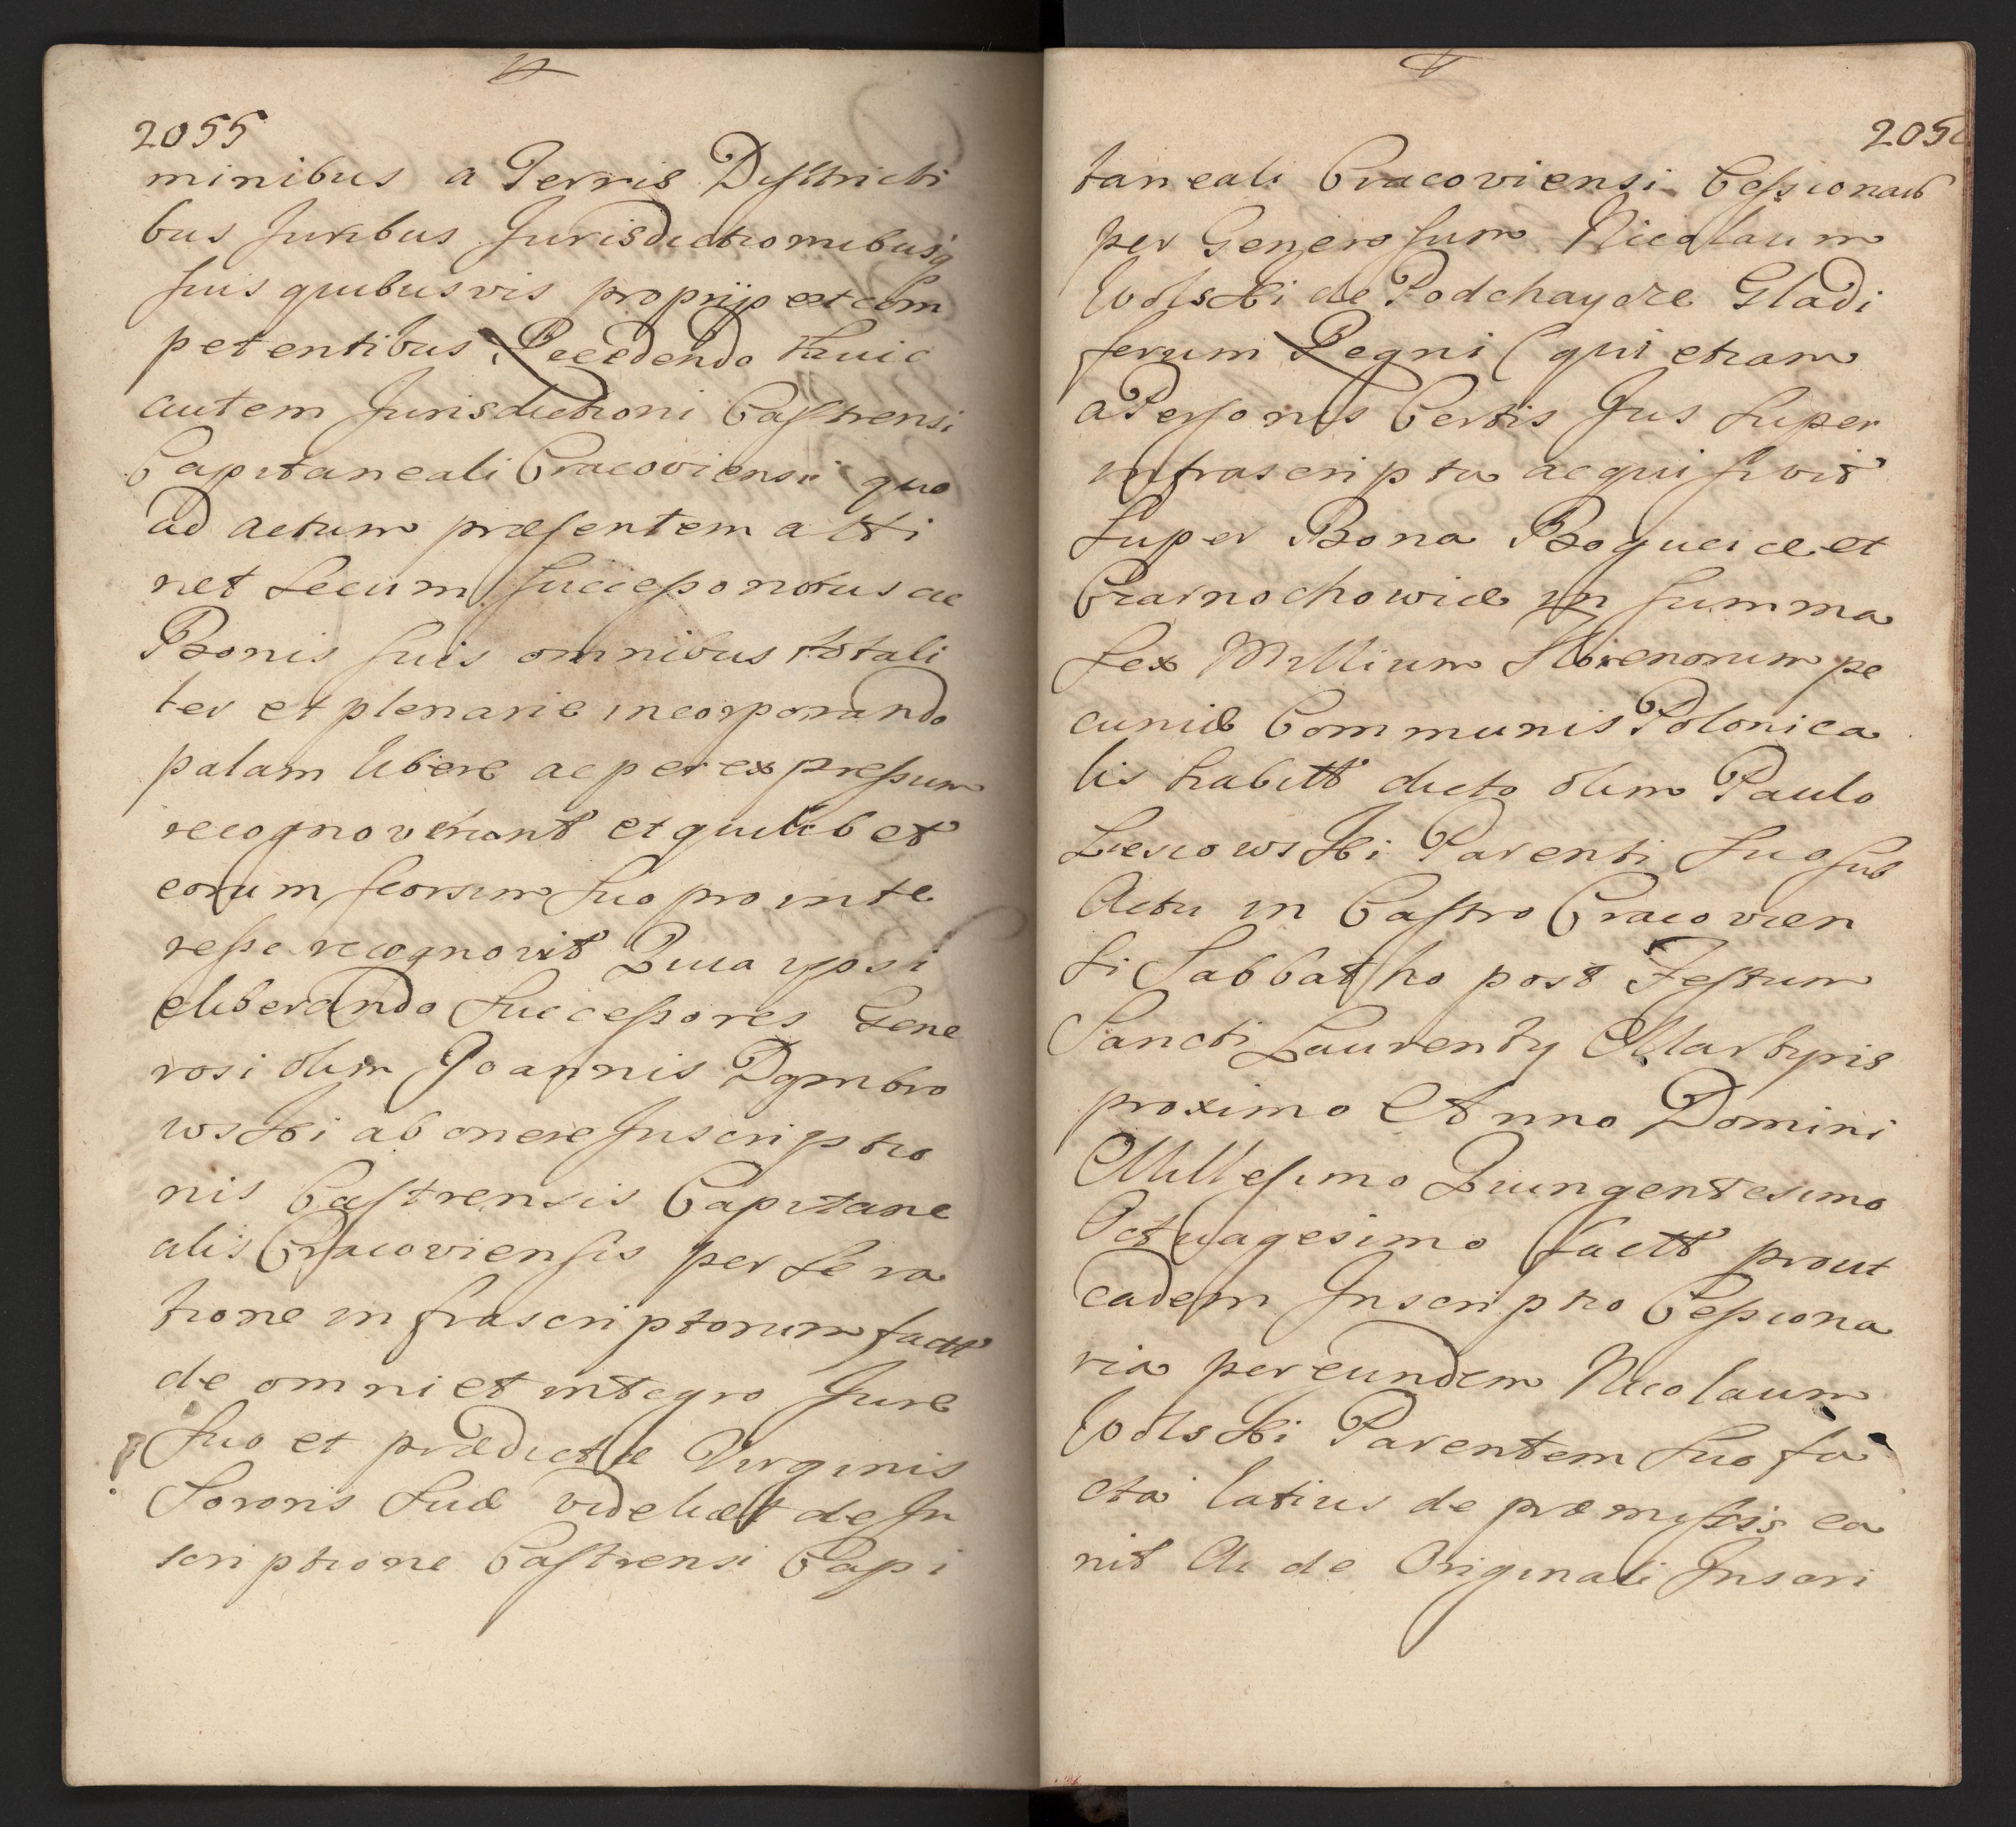 2055
minibus a Terris Districti
bus Juribus Jurisdictionibusq
suis quibusvis proprijs et com
petentibus Recedendo Huic
autem Jurisdictioni Castrensi
Capitaneali Cracoviensi quo
ad actum præsentem atti
net Secum Successoribus ac
Bonis suis omnibus totali
ter et plenarie incorporando
palam libere ac per expressum
recognoverunt et quilibet
eorum seorsim suo pro inte
resse recognovit Quia ipsi
eliberando Successores Gene
rosi olim Joannis Dąmbro
wski ab onere Inscriptio
nis Castrensis Capitane
alis Cracoviensis per se ra
tione infrascriptorum factt
de omni et integro Jure
suo et prædictæ Virginis
Sororis suæ videlicet de In
scriptione Castrensi Capi
205
taneali Cracoviensi Cessionari
per Generosum Nicolaum
Wolski de Podchaycze Gladi
ferum Regni (qui etiam
a Personis Certis Jus super
infrascripta acquisivit
super Bona Bogucice et
Czarnochowice in summa
sex Millium florenorum pe
cuniæ Communis Polonica
lis habitt dicto olim Paulo
Lesiowski Parenti suo sub
Actu in Castro Cracovien
si Sabbatho post Festum
Sancti Laurenty Martyris
proximo Anno Domini
Millesimo Quingentesimo
Octuagesimo factt prout
eadem Inscriptio Cessiona
ria per eundem Nicolaum
Wolski Parentem suo fa
cta latius de præmissis ca
nit Ac de Originali Inscri